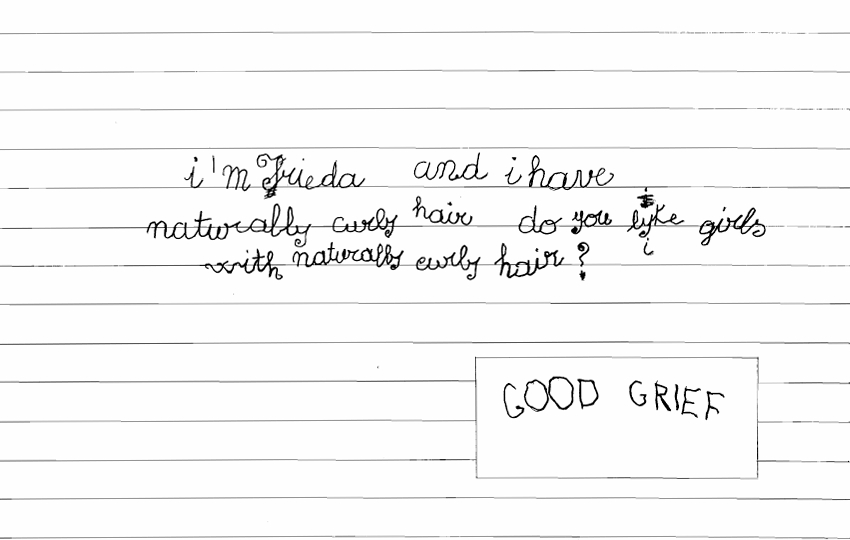 i'm Frieda and i have
naturally curly hair do you lyke girls
i
with naturally curly hair?
GOOD GRIEF